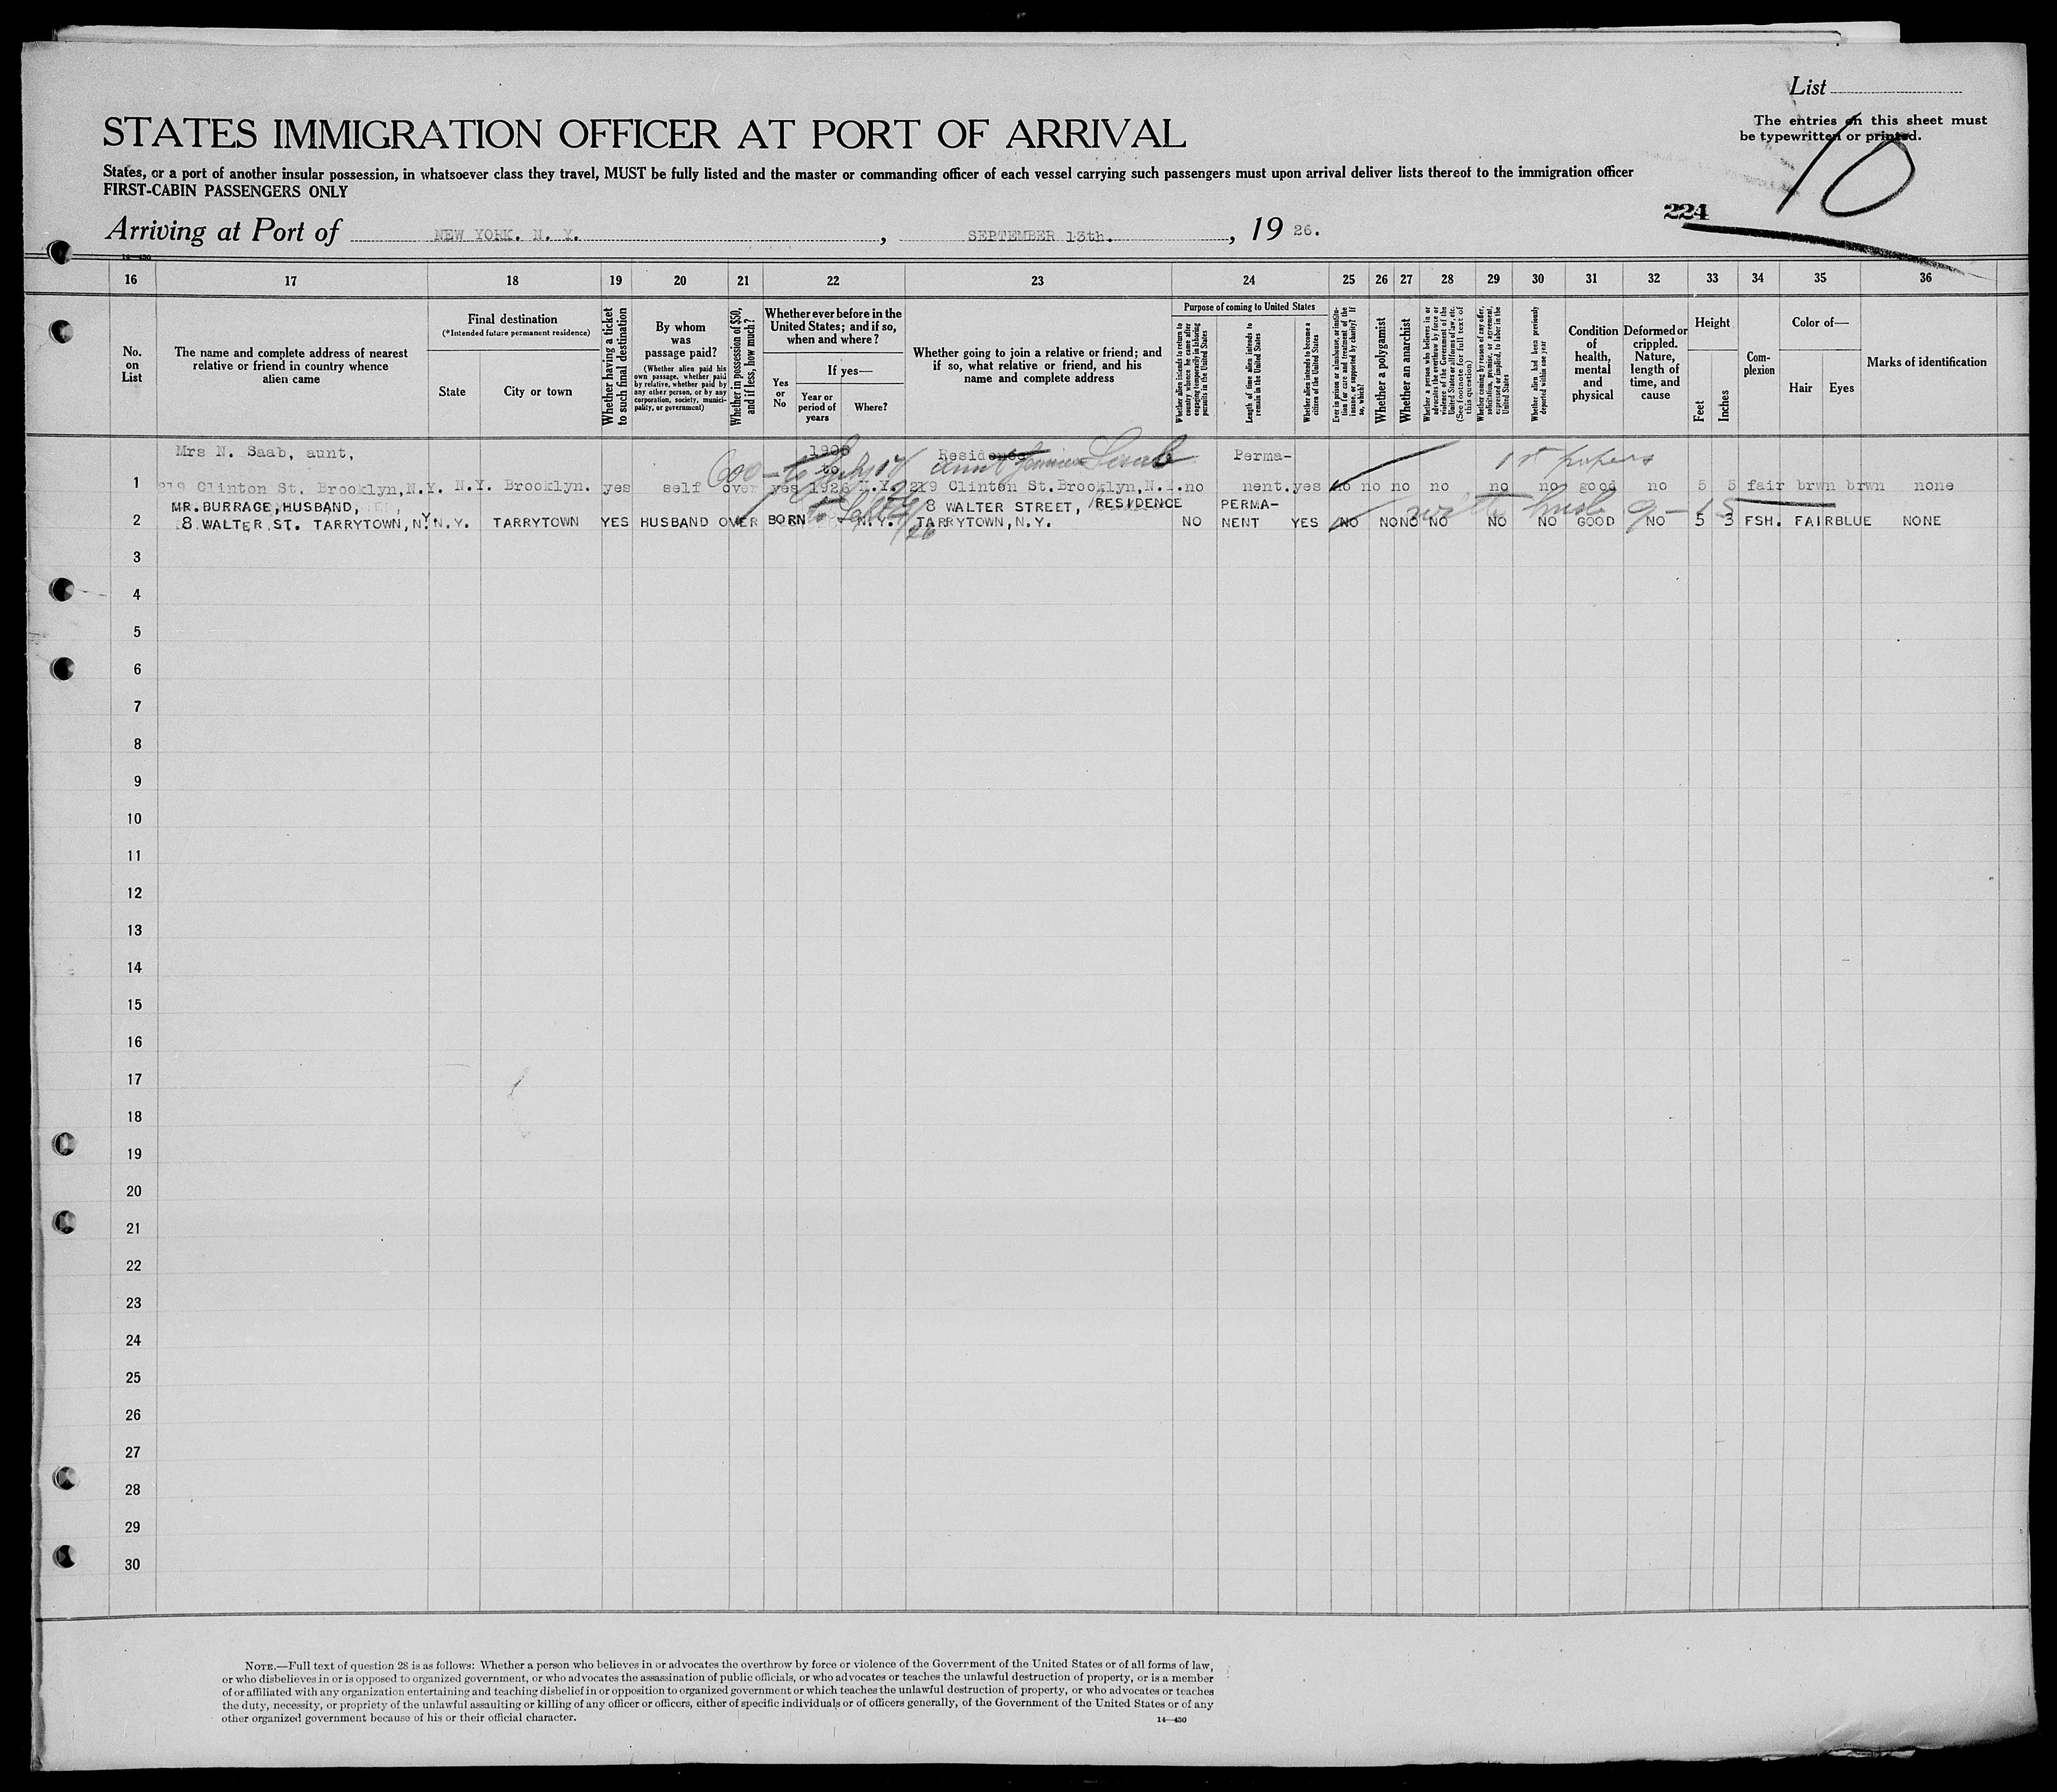 List
The entries on this sheet must
be typewritten or printed.
10
STATES IMMIGRATION OFFICER AT PORT OF ARRIVAL
States, or a port of another insular possession, in whatsoever class they travel, MUST be fully listed and the master or commanding officer of each vessel carrying such passengers must upon arrival deliver lists thereof to the immigration officer
FIRST-CABIN PASSENGERS ONLY
224
Arriving at Port of NEW YORK. N. Y. , SEPTEMBER 13th. , 19 26.
14—430
16 17 18 19 20 21 22 23 24 25 26 27 28 29 30 31 32 33 34 35 36
No.
on
List
The name and complete address of nearest
relative or friend in country whence
alien came
Final destination
(*Intended future permanent residence)
State
City or town
Whether having a ticket
to such final destination
By whom
was
passage paid?
(Whether alien paid his
own passage, whether paid
by relative, whether paid by
any other person, or by any
corporation, society, munici-
pality, or government)
Whether in possession of $50,
and if less, how much?
Whether ever before in the
United States; and if so,
when and where?
Yes
or
No
If yes—
Year or
period of
years
Where?
Whether going to join a relative or friend; and
if so, what relative or friend, and his
name and complete address
Purpose of coming to United States
Whether alien intends to return to
country whence he came after
engaging temporarily in laboring
pursuits in the United States
Length of time alien intends to
remain in the United States
Whether alien intends to become a
citizen of the United States
Ever in prison or almshouse, or institu-
tion for care and treatment of the
insane, or supported by charity? If
so, which?
Whether a polygamist
Whether an anarchist
Whether a person who believes in or
advocates the overthrow by force or
violence of the Government of the
United States or all forms of law, etc.
(See footnote for full text of
this question)
Whether coming by reason of any offer,
solicitation, promise, or agreement,
expressed or implied, to labor in the
United States
Whether alien had been previously
deported within one year
Condition
of
health,
mental
and
physical
Deformed or
crippled.
Nature,
length of
time, and
cause
Height
Feet
Inches
Com-
plexion
Color of—
Hair
Eyes
Marks of identification
Mrs N. Saab, aunt, 1906 Residence Perma-
to aunt Saab 1st papers
1 219 Clinton St. Brooklyn,N.Y. N.Y. Brooklyn. yes self over yes 1926 N.Y. 219 Clinton St.Brooklyn,N.Y. no nent. yes no no no no no no good no 5 5 fair brwn brwn none
MR.BURRAGE,HUSBAND, 8 WALTER STREET, RESIDENCE PERMA-
with husb 9-15
2 8 WALTER ST. TARRYTOWN,N.Y. N.Y. TARRYTOWN YES HUSBAND OVER BORN N.Y. TARRYTOWN,N.Y. NO NENT YES NO NO NO NO NO NO GOOD NO 5 3 FSH. FAIR BLUE NONE
3
4
5
6
7
8
9
10
11
12
13
14
15
16
17
18
19
20
21
22
23
24
25
26
27
28
29
30
NOTE.—Full text of question 28 is as follows: Whether a person who believes in or advocates the overthrow by force or violence of the Government of the United States or of all forms of law,
or who disbelieves in or is opposed to organized government, or who advocates the assassination of public officials, or who advocates or teaches the unlawful destruction of property, or is a member
of or affiliated with any organization entertaining and teaching disbelief in or opposition to organized government or which teaches the unlawful destruction of property, or who advocates or teaches
the duty, necessity, or propriety of the unlawful assaulting or killing of any officer or officers, either of specific individuals or of officers generally, of the Government of the United States or of any
other organized government because of his or their official character.
14—430